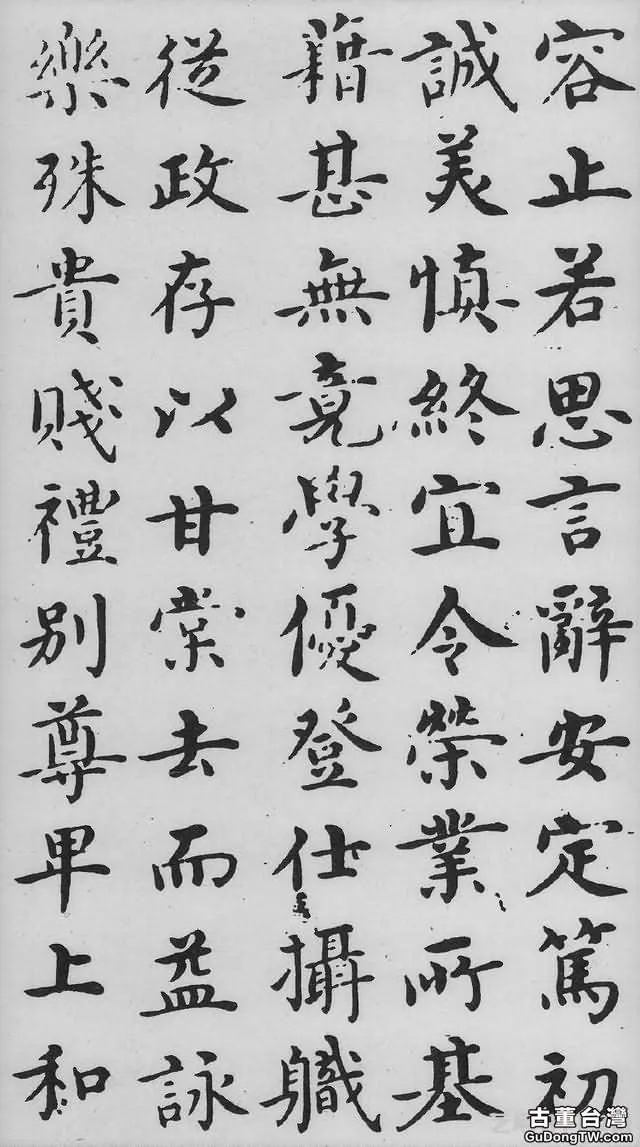 容止若思言辭安定篤初
誠美慎終宜令榮業所基
藉甚無竟學優登仕攝職
從政存以甘棠去而益詠
樂殊貴賤禮別尊卑上和
古董台灣
GuDongTW.com